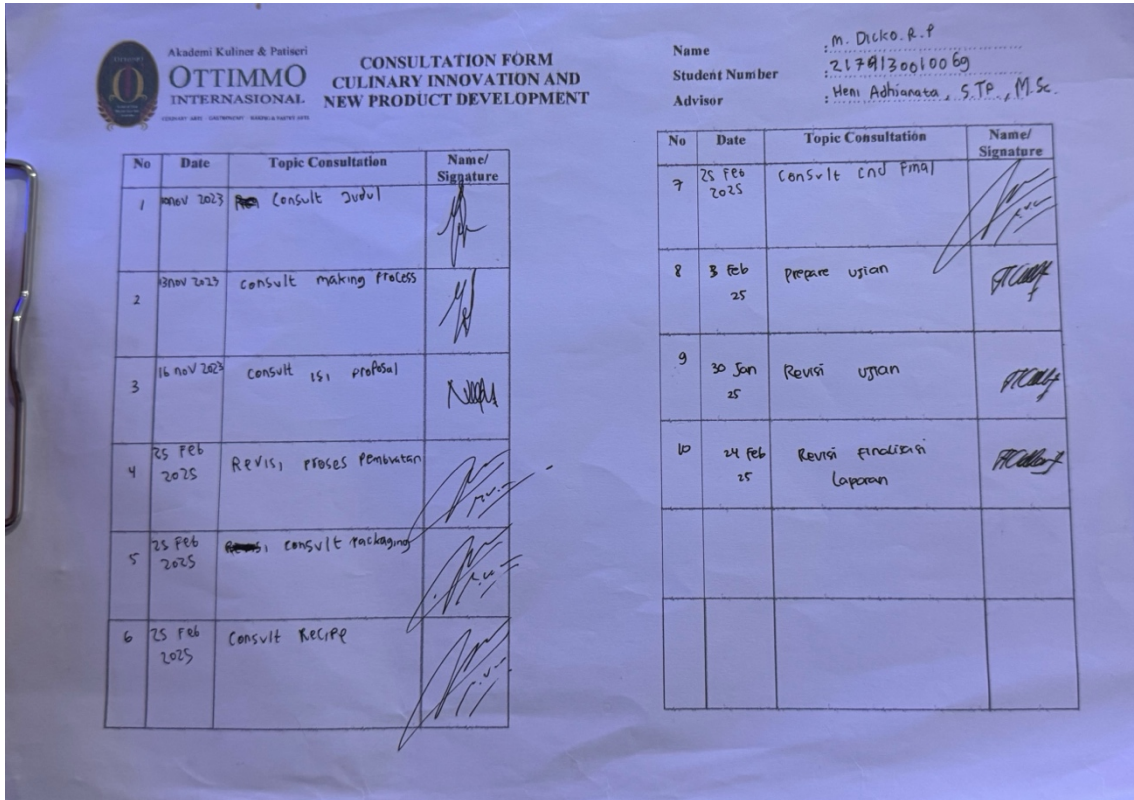 Akademi Kuliner & Patiseri
OTTIMMO
INTERNASIONAL
CONSULTATION FORM
CULINARY INNOVATION AND
NEW PRODUCT DEVELOPMENT
Name : M. Dicko. R. P
Student Number : 2179130010069
Advisor : Heni Adhianata, S.TP., M.Sc.
No Date Topic Consultation Name/
Signature
1 10 nov 2023 Consult Judul
2 13 nov 2023 consult making Process
3 16 nov 2023 consult isi proposal
4 25 Feb
2025 Revisi proses Pembuatan
5 25 Feb
2025 consult Packaging
6 25 Feb
2025 Consult Recipe
No Date Topic Consultation Name/
Signature
7 25 Feb
2025 Consult cnd Final
8 3 Feb
25 Prepare ujian
9 30 Jan
25 Revisi ujian
10 24 Feb
25 Revisi Finalisasi
Laporan